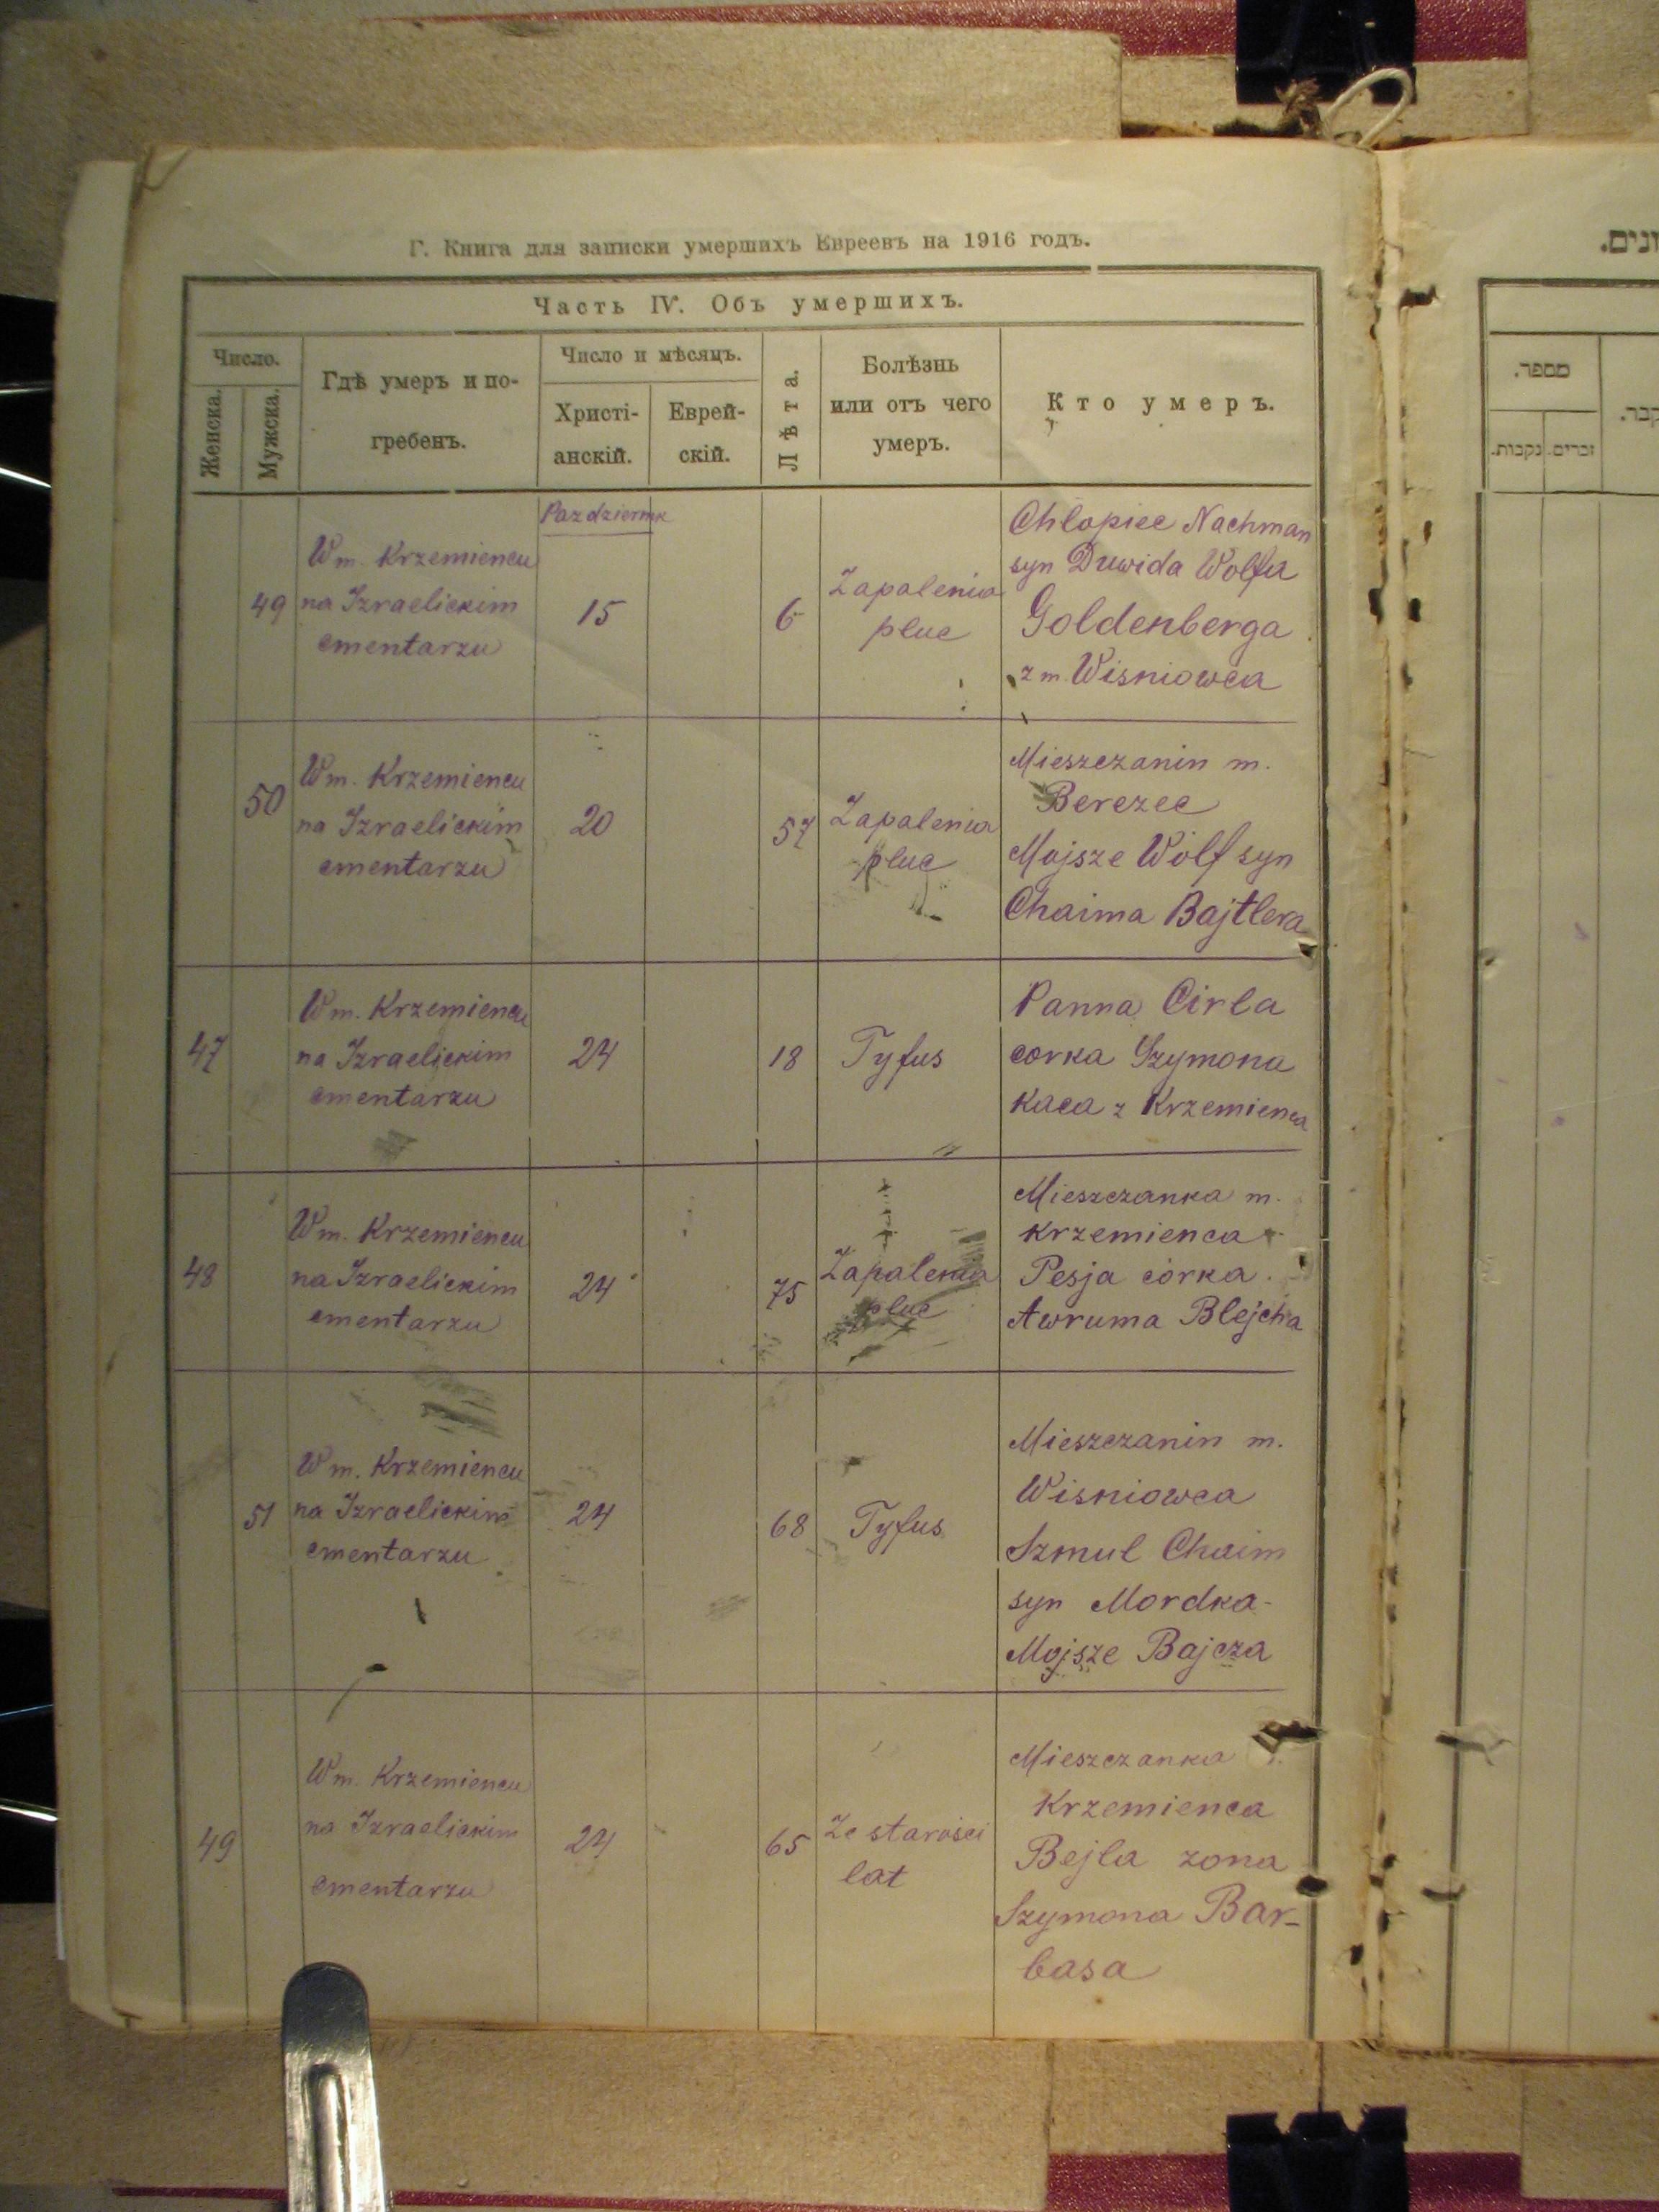 Г. Книга для записки умершихъ Евреевъ на 1916 годъ.
Часть IV. Объ умершихъ.
Число.
Женска.
Мужска.
Гдѣ умеръ и по-
гребенъ.
Число и мѣсяцъ.
Христі-
анскій.
Еврей-
скій.
Лѣта.
Болѣзнь
или отъ чего
умеръ.
Кто умеръ.
Pazdziernik
49
W m. Krzemiencu
na Izraelickim
cmentarzu
15
6
Zapalenia
pluc
Chlopiec Nachman
syn Duwida Wolfa
Goldenberga
z m. Wisniowca
50
W m. Krzemiencu
na Izraelickim
cmentarzu
20
57
Zapalenia
pluc
Mieszczanin m.
Berezec
Mojsze Wolf syn
Chaima Bajtlera
47
W m. Krzemiencu
na Izraelickim
cmentarzu
24
18
Tyfus
Panna Cirla
corka Szymona
Kaca z Krzemienca
48
W m. Krzemiencu
na Izraelickim
cmentarzu
24
75
Zapalenia
pluc
Mieszczanka m.
Krzemienca
Pesja córka
Awruma Blejcha
51
W m. Krzemiencu
na Izraelickim
cmentarzu
24
68
Tyfus
Mieszczanin m.
Wisniowca
Szmul Chaim
syn Mordka-
Mojsze Bajcza
49
W m. Krzemiencu
na Izraelickim
cmentarzu
24
65
Ze starości
lat
Mieszczanka
Krzemienca
Bejla zona
Szymona Bar-
basa
מספר.
זכרים.
נקבות.